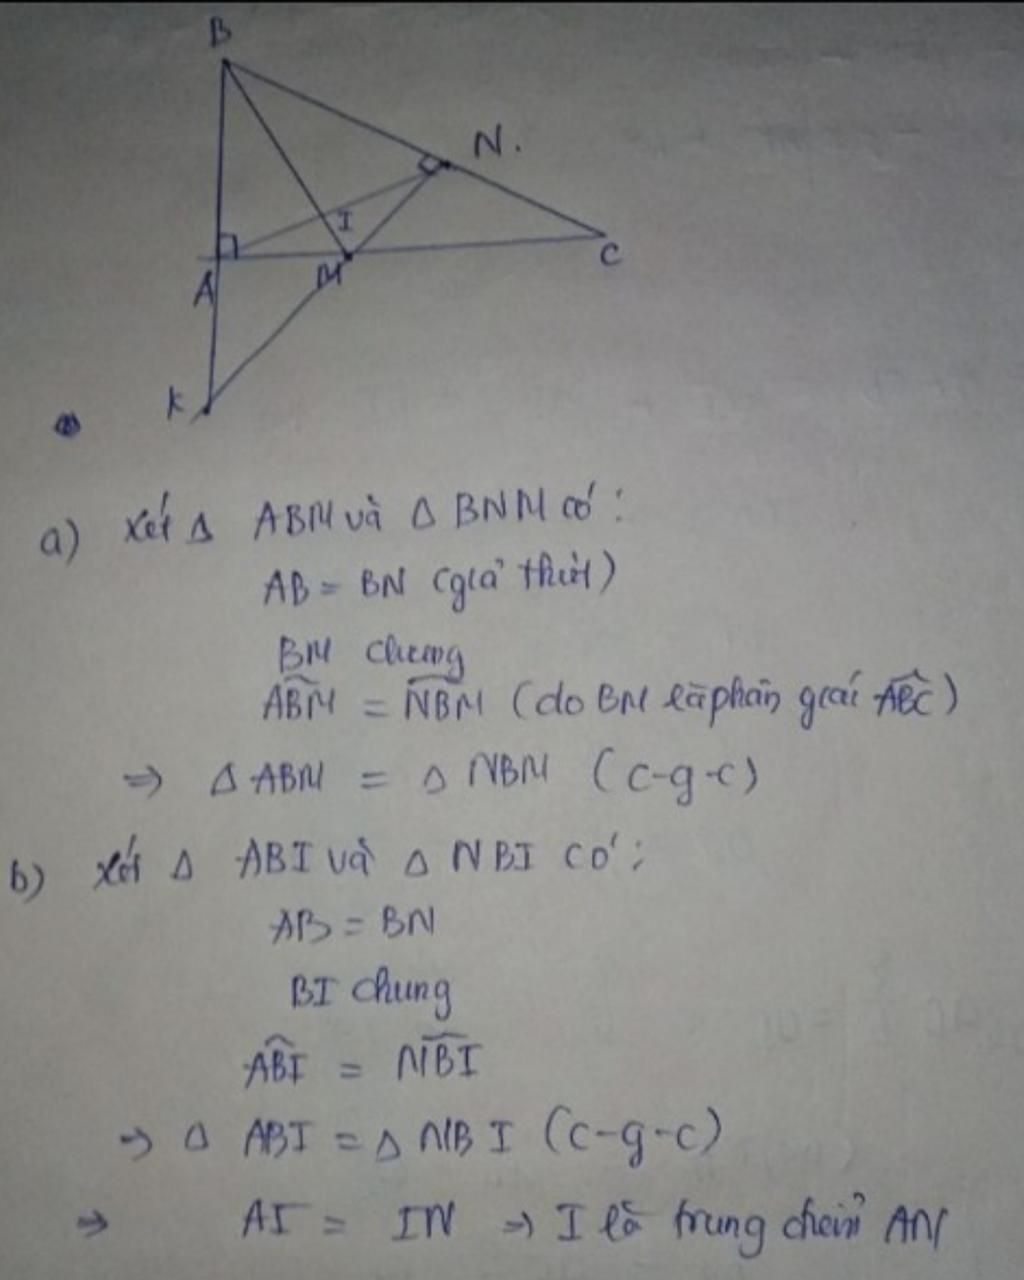 B
N.
I
A
M
C
K
a) Xét Δ ABM và Δ BNM có:
AB = BN (giả thiết)
BM chung
ABM̂ = NBM̂ (do BM là phân giác ABĈ)
⇒ Δ ABM = Δ NBM (c-g-c)
b) Xét Δ ABI và Δ NBI có:
AB = BN
BI chung
ABÎ = NBÎ
⇒ Δ ABI = Δ NBI (c-g-c)
⇒ AI = IN ⇒ I là trung điểm AN